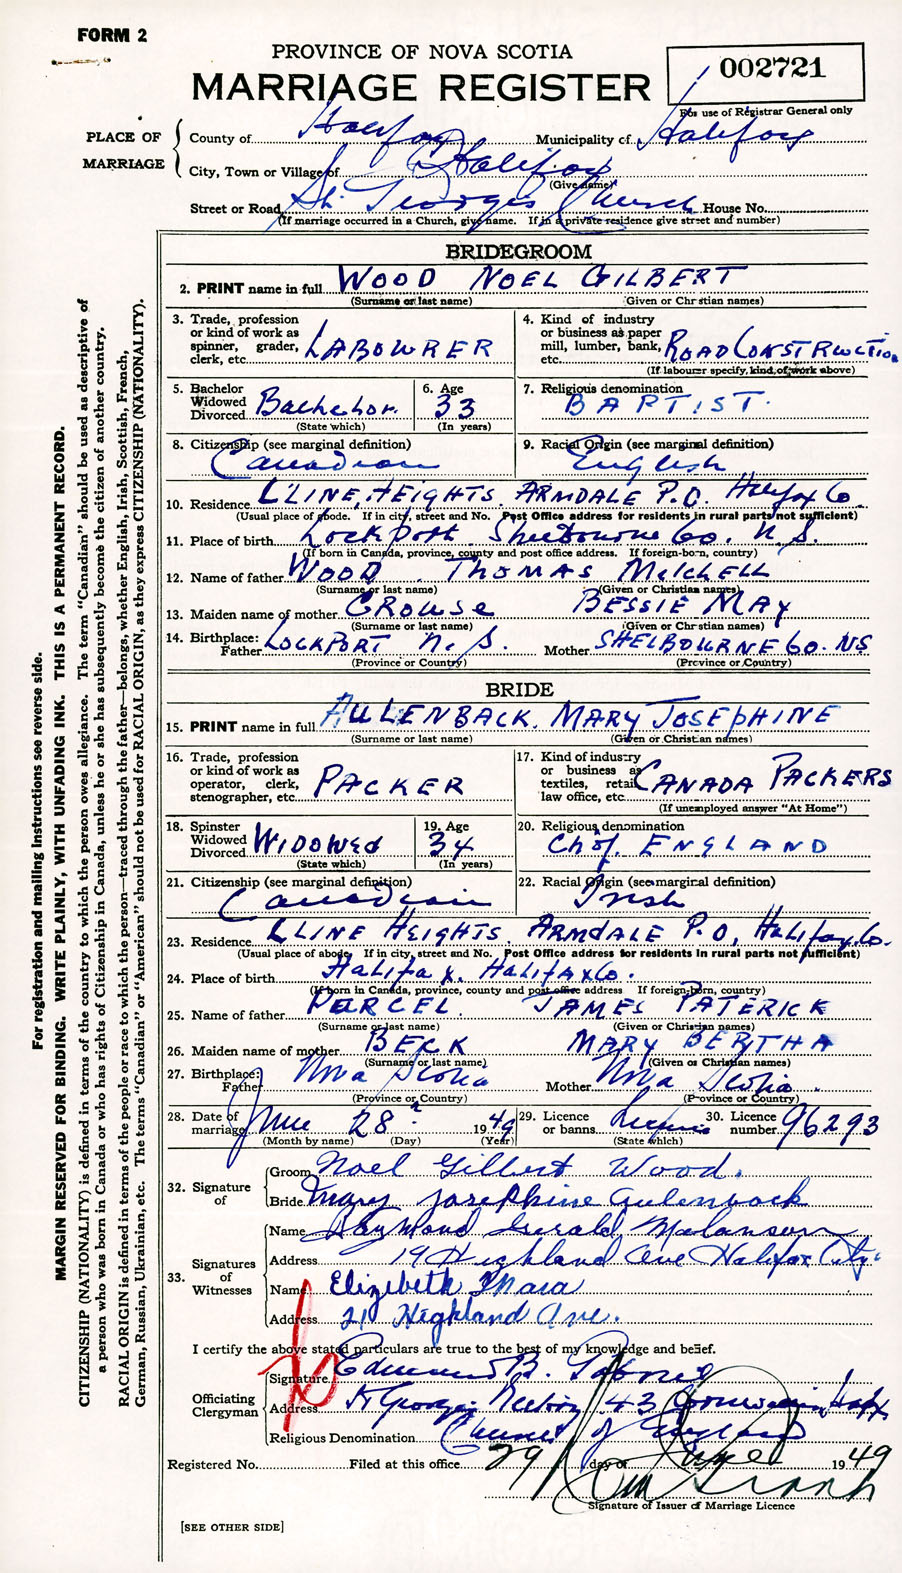 FORM 2
PROVINCE OF NOVA SCOTIA
MARRIAGE REGISTER
002721
For use of Registrar General only
PLACE OF MARRIAGE
County of Halifax Municipality of Halifax
City, Town or Village of Halifax
(Give name)
Street or Road St. Georges Church House No.
(If marriage occurred in a Church, give name. If in a private residence give street and number)
BRIDEGROOM
2. PRINT name in full WOOD NOEL GILBERT
(Surname or last name) (Given or Christian names)
3. Trade, profession or kind of work as spinner, grader, clerk, etc. LABOWRER
4. Kind of industry or business as paper mill, lumber, bank, etc. ROAD CONSTRUCTION
(If labourer specify, kind of work above)
5. Bachelor Widowed Divorced Bachelor
(State which)
6. Age 33
(In years)
7. Religious denomination BAPTIST
8. Citizenship (see marginal definition) Canadian
9. Racial Origin (see marginal definition) English
10. Residence CLINE HEIGHTS. ARMDALE P.O. Halifax Co
(Usual place of abode. If in city, street and No. Post Office address for residents in rural parts not sufficient)
11. Place of birth Lockport Shelbourne Co. N.S.
(If born in Canada, province, county and post office address. If foreign-born, country)
12. Name of father WOOD. THOMAS MITCHELL
(Surname or last name) (Given or Christian names)
13. Maiden name of mother CROWSE BESSIE MAY
(Surname or last name) (Given or Christian names)
14. Birthplace: Father LOCKPORT N.S. Mother SHELBOURNE CO. NS
(Province or Country) (Province or Country)
BRIDE
15. PRINT name in full AULENBACK. MARY JOSEPHINE
(Surname or last name) (Given or Christian names)
16. Trade, profession or kind of work as operator, clerk, stenographer, etc. PACKER
17. Kind of industry or business as textiles, retail law office, etc. CANADA PACKERS
(If unemployed answer "At Home")
18. Spinster Widowed Divorced WIDOWED
(State which)
19. Age 34
(In years)
20. Religious denomination Ch of ENGLAND
21. Citizenship (see marginal definition) Canadian
22. Racial Origin (see marginal definition) Irish
23. Residence CLINE HEIGHTS, ARMDALE P.O, Halifax Co.
(Usual place of abode. If in city, street and No. Post Office address for residents in rural parts not sufficient)
24. Place of birth Halifax. Halifax Co.
(If born in Canada, province, county and post office address If foreign-born, country)
25. Name of father PURCEL. JAMES PATERICK
(Surname or last name) (Given or Christian names)
26. Maiden name of mother BECK MARY BERTHA
(Surname or last name) (Given or Christian names)
27. Birthplace: Father Nova Scotia Mother Nova Scotia
(Province or Country) (Province or Country)
28. Date of marriage June 28 1949
(Month by name) (Day) (Year)
29. Licence or banns
(State which)
30. Licence number 96293
32. Signature of Groom Noel Gilbert Wood.
Bride Mary Josephine Aulenback
33. Signatures of Witnesses
Name Raymond Gerald Melanson
Address 19 Highland Ave Halifax City
Name Elizabeth Mara
Address 21 Highland Ave.
I certify the above stated particulars are true to the best of my knowledge and belief.
Officiating Clergyman
Signature Edmund B.
Address St Georges Rectory 43 Hfx
Religious Denomination Church of England
Registered No. Filed at this office 29 day of June 1949
Signature of Issuer of Marriage Licence
[SEE OTHER SIDE]
For registration and mailing instructions see reverse side.
MARGIN RESERVED FOR BINDING. WRITE PLAINLY, WITH UNFADING INK. THIS IS A PERMANENT RECORD.
CITIZENSHIP (NATIONALITY) is defined in terms of the country to which the person owes allegiance. The term "Canadian" should be used as descriptive of
a person who was born in Canada or who has rights of Citizenship in Canada, unless he or she has subsequently become the citizen of another country.
RACIAL ORIGIN is defined in terms of the people or race to which the person—traced through the father—belongs, whether English, Irish, Scottish, French,
German, Russian, Ukrainian, etc. The terms "Canadian" or "American" should not be used for RACIAL ORIGIN, as they express CITIZENSHIP (NATIONALITY).